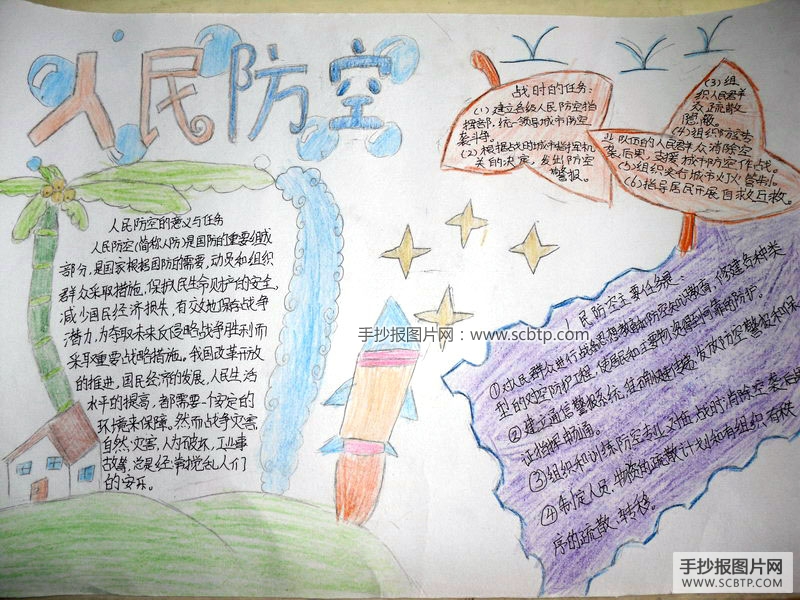 人民防空
人民防空的意义与任务
人民防空(简称人防)是国防的重要组成
部分,是国家根据国防的需要,动员和组织
群众采取措施,保护人民生命财产的安全,
减少国民经济损失,有效地保存战争
潜力,为夺取未来反侵略战争胜利而
采取重要战略措施。我国改革开放
的推进,国民经济的发展,人民生活
水平的提高,都需要一个安定的
环境来保障。然而战争灾害
自然灾害、人为破坏、工业事
故等,总是经常搅乱人们
的安乐。
战时的任务:
(1)建立各级人民防空指
挥部,统一领导城市防空
袭斗争。
(2)根据战时城市指挥机
关的决定,发出防空
警报。
(3)组
织人民群
众疏散
隐蔽。
(4)组织防空专
业队伍的人民群众消除空
袭后果,支援城市防空作战。
(5)组织实行城市灯火管制。
(6)指导居民开展自救互救。
手抄报图片网:www.scbtp.com
民防空主要任务是:
①对人民群众进行战备思想教育和防空知识教育,修建各种类
型的对空防护工程,使居民和主要物资得到可靠的防护。
②建立通信警报系统,准确快速传递、发放防空警报和保
证指挥畅通。
③组织和训练防空专业队伍,战时消除空袭后果
④制定人员、物资的疏散计划和有组织有秩
序的疏散、转移。
手抄报图片网
WWW.SCBTP.COM